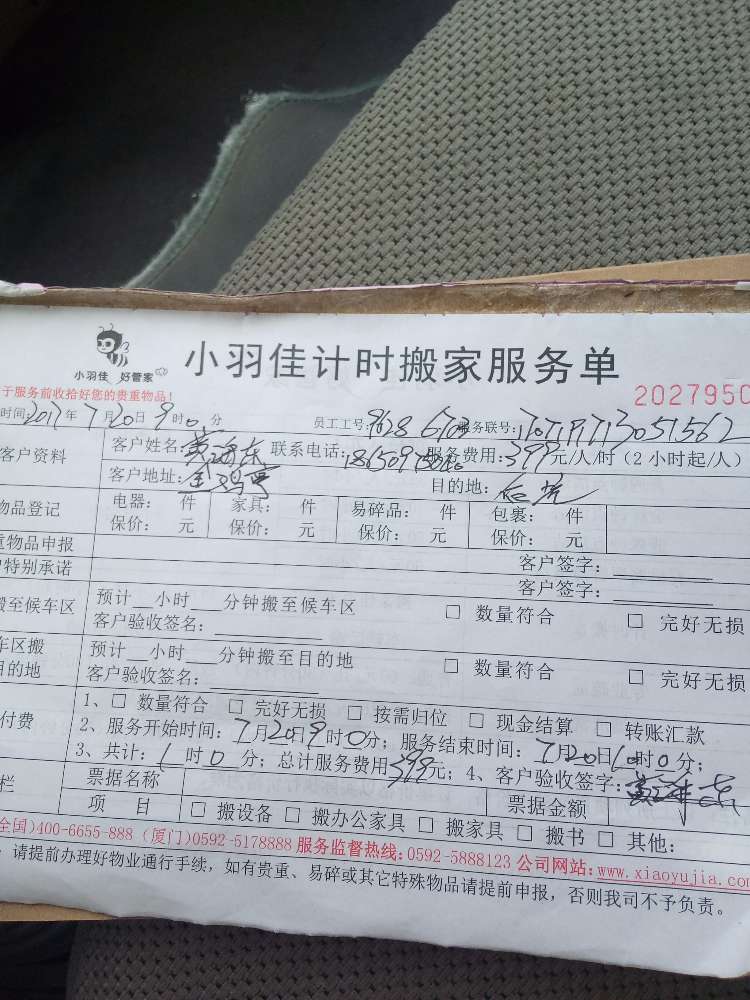 小羽佳 好管家
小羽佳计时搬家服务单
于服务前收拾好您的贵重物品!
2027950
时间:2017年7月20日9时0分 员工工号:9628 服务联号:
客户资料 客户姓名: 联系电话: 服务费用:399元/人/时(2小时起/人)
客户地址: 目的地:
物品登记 电器: 件 家具: 件 易碎品: 件 包裹: 件
保价: 元 保价: 元 保价: 元 保价: 元
重物品申报 客户签字:
户特别承诺 客户签字:
搬至候车区 预计 小时 分钟搬至候车区 □ 数量符合 □ 完好无损
客户验收签名:
车区搬 预计 小时 分钟搬至目的地 □ 数量符合 □ 完好无损
目的地 客户验收签名:
付费 1、□ 数量符合 □ 完好无损 □ 按需归位 □ 现金结算 □ 转账汇款
2、服务开始时间:7月20日9时0分;服务结束时间:7月20日10时0分;
3、共计:1时0分;总计服务费用399元;4、客户验收签字:
栏 票据名称 票据金额
项 目 □ 搬设备 □ 搬办公家具 □ 搬家具 □ 搬书 □ 其他:
全国)400-6655-888 (厦门)0592-5178888 服务监督热线:0592-5888123 公司网站:www.xiaoyujia.com
请提前办理好物业通行手续,如有贵重、易碎或其它特殊物品请提前申报,否则我司不予负责。